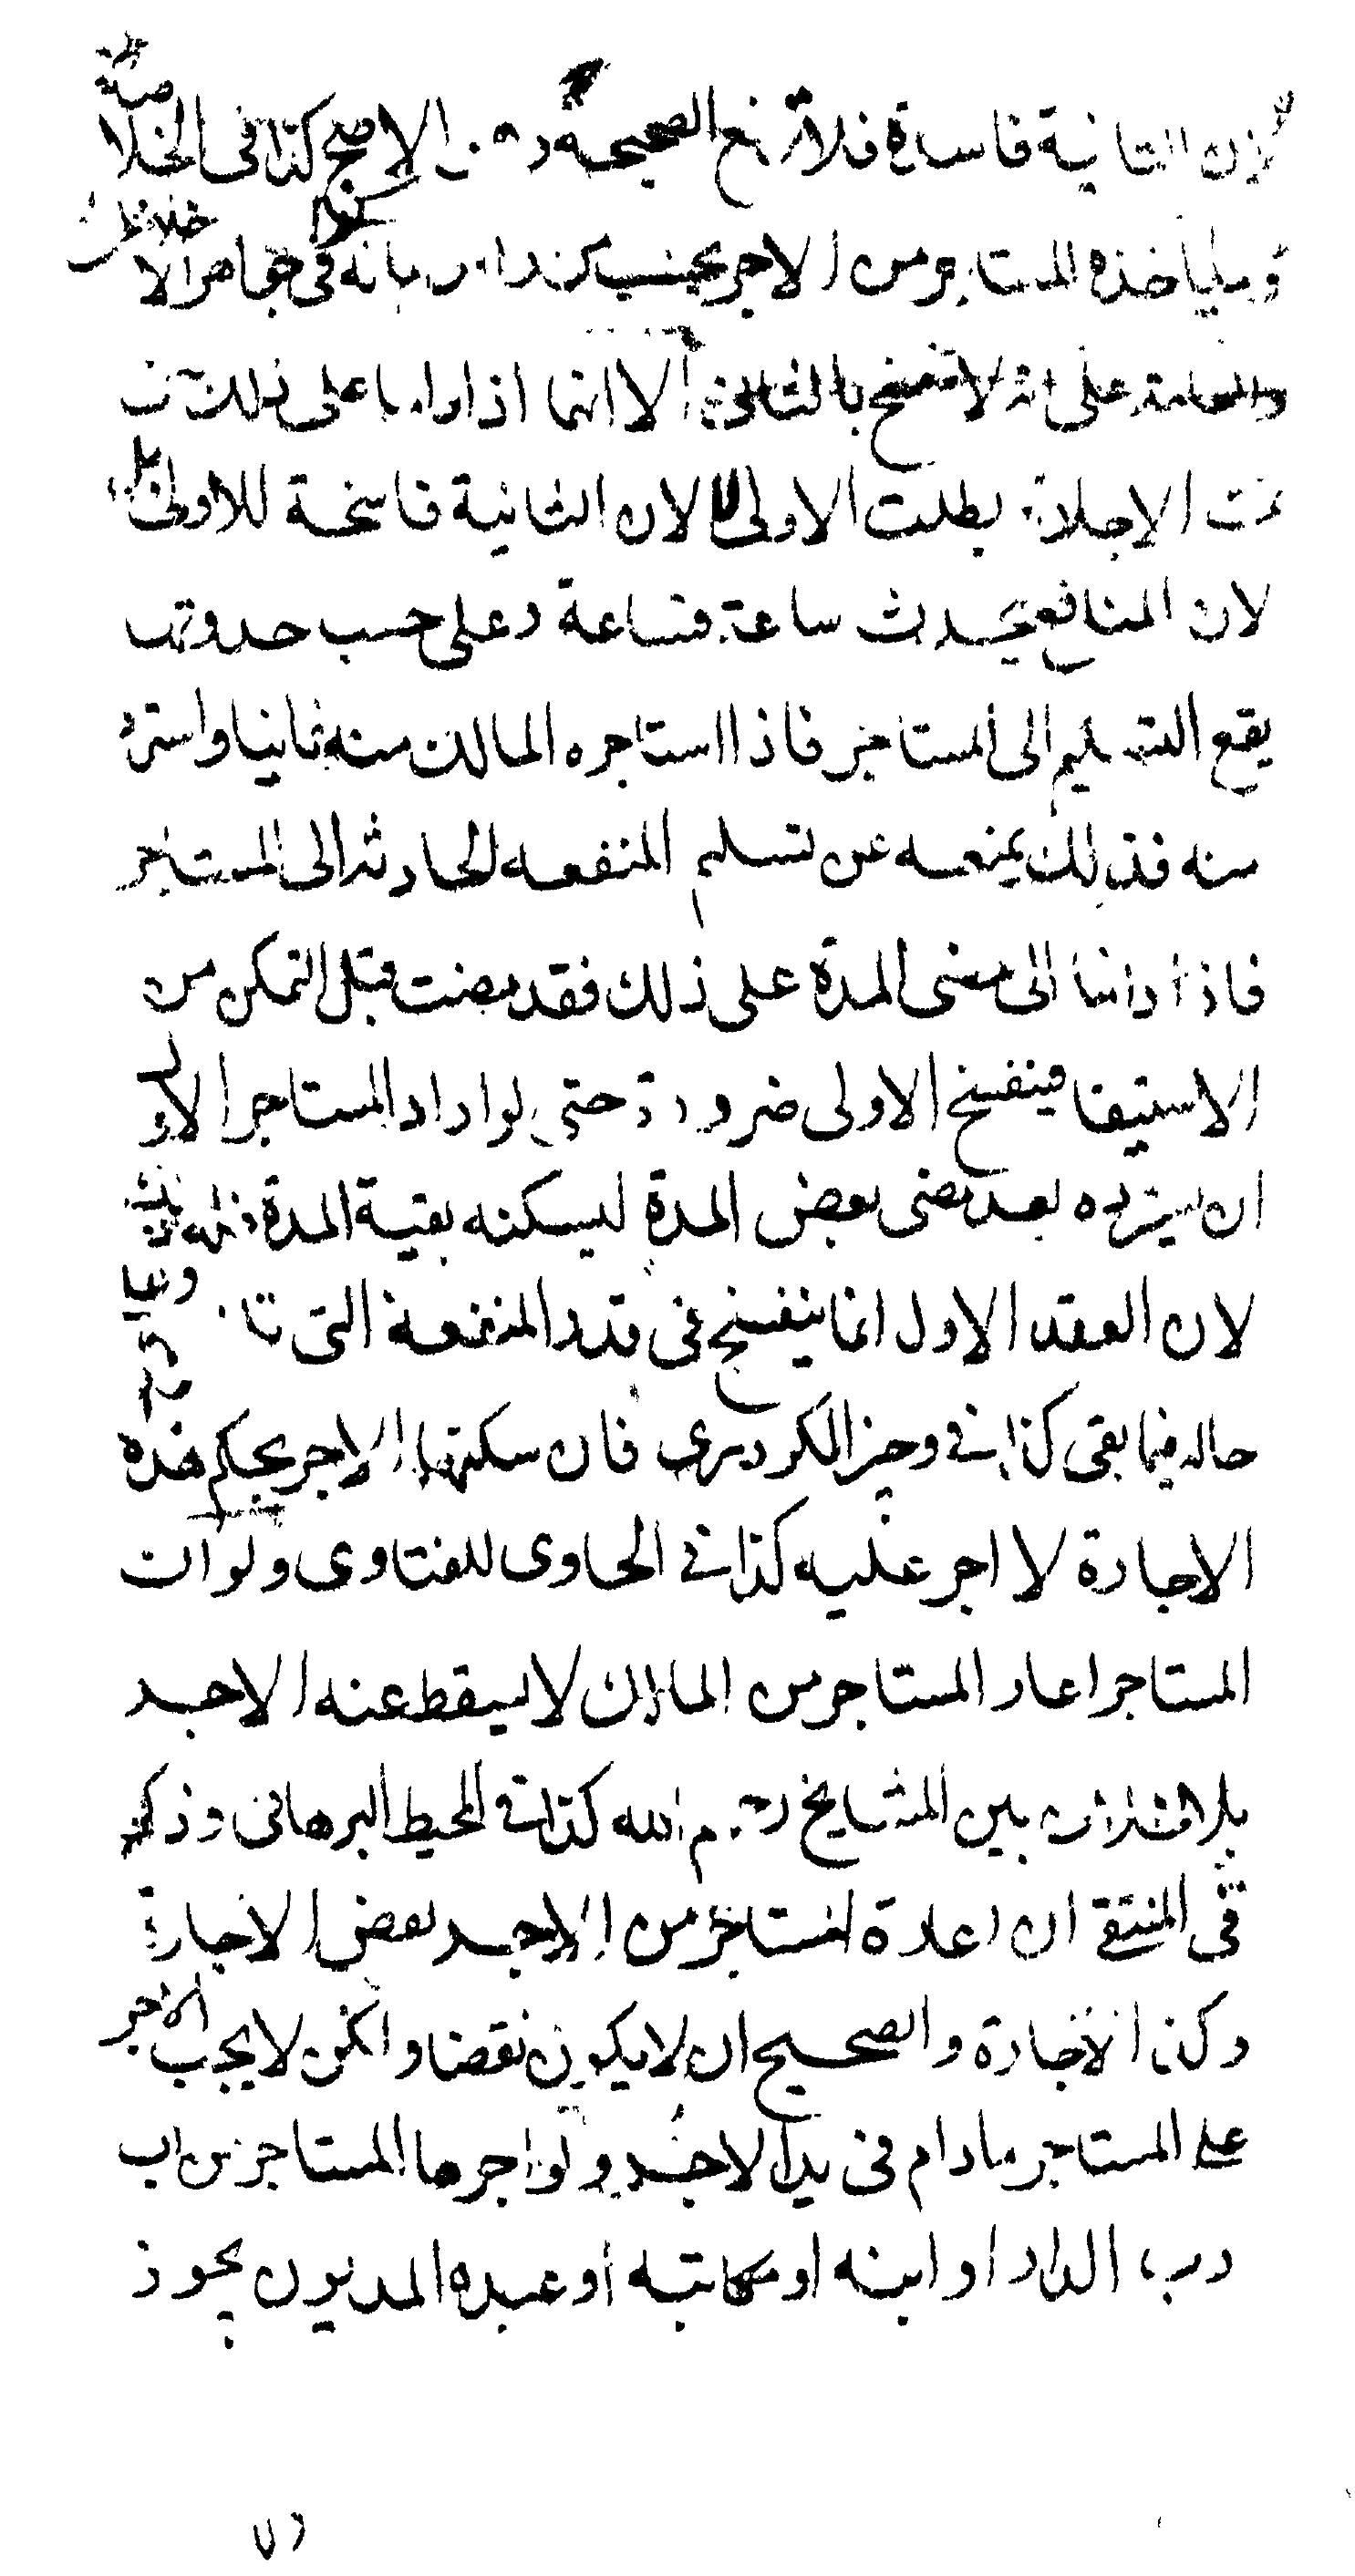 لان الثانية فاسدة فلا ترفع الصحيحة وهو الاصح كذا فى الخلاصة
وما ياخذه المستاجر من الاجر يحتسب كذا فى جواهر الاخلاطى
والعامة على انه لا تنفسخ بالثانى الا انهما اذا داما على ذلك حتى
تمت الاجارة بطلت الاولى لا لان الثانية فاسخة للاولى بل
لان المنافع يحدث ساعة فساعة وعلى حسب حدوثها
يقع التسليم الى المستاجر فاذا استاجره المالك منه ثانيا واسترد
منه فذلك يمنعه عن تسليم المنفعة الحادثة الى المستاجر
فاذا داما الى مضى المدة على ذلك فقد مضت قبل التمكن من
الاستيفا فينفسخ الاولى ضرورة حتى لو اراد المستاجر الاول
ان يسترده بعد مضى بعض المدة ليسكنه بقية المدة فله ذلك
لان العقد الاول انما ينفسخ فى قدر المنفعة التى
حاله فيما بقى كذا فى وجيز الكردرى فان سكنها الاجر بحكم هذه
الاجارة لا اجر عليه كذا فى الحاوى للفتاوى ولو ان
المستاجر اعار المستاجر من المالك لا يسقط عنه الاجر
بلا خلاف بين المشايخ رحمهم الله كذا فى المحيط البرهانى وذكر
فى المنتقى ان اعارة المستاجر من الاجر نقض الاجارة
وكذا الاجارة والصحيح ان لا يكون نقضا ولكن لا يجب الاجر
على المستاجر مادام فى يد الاجر ولو اجرها المستاجر من اب
رب الدار او ابنه او مكاتبه او عبده المديون يجوز